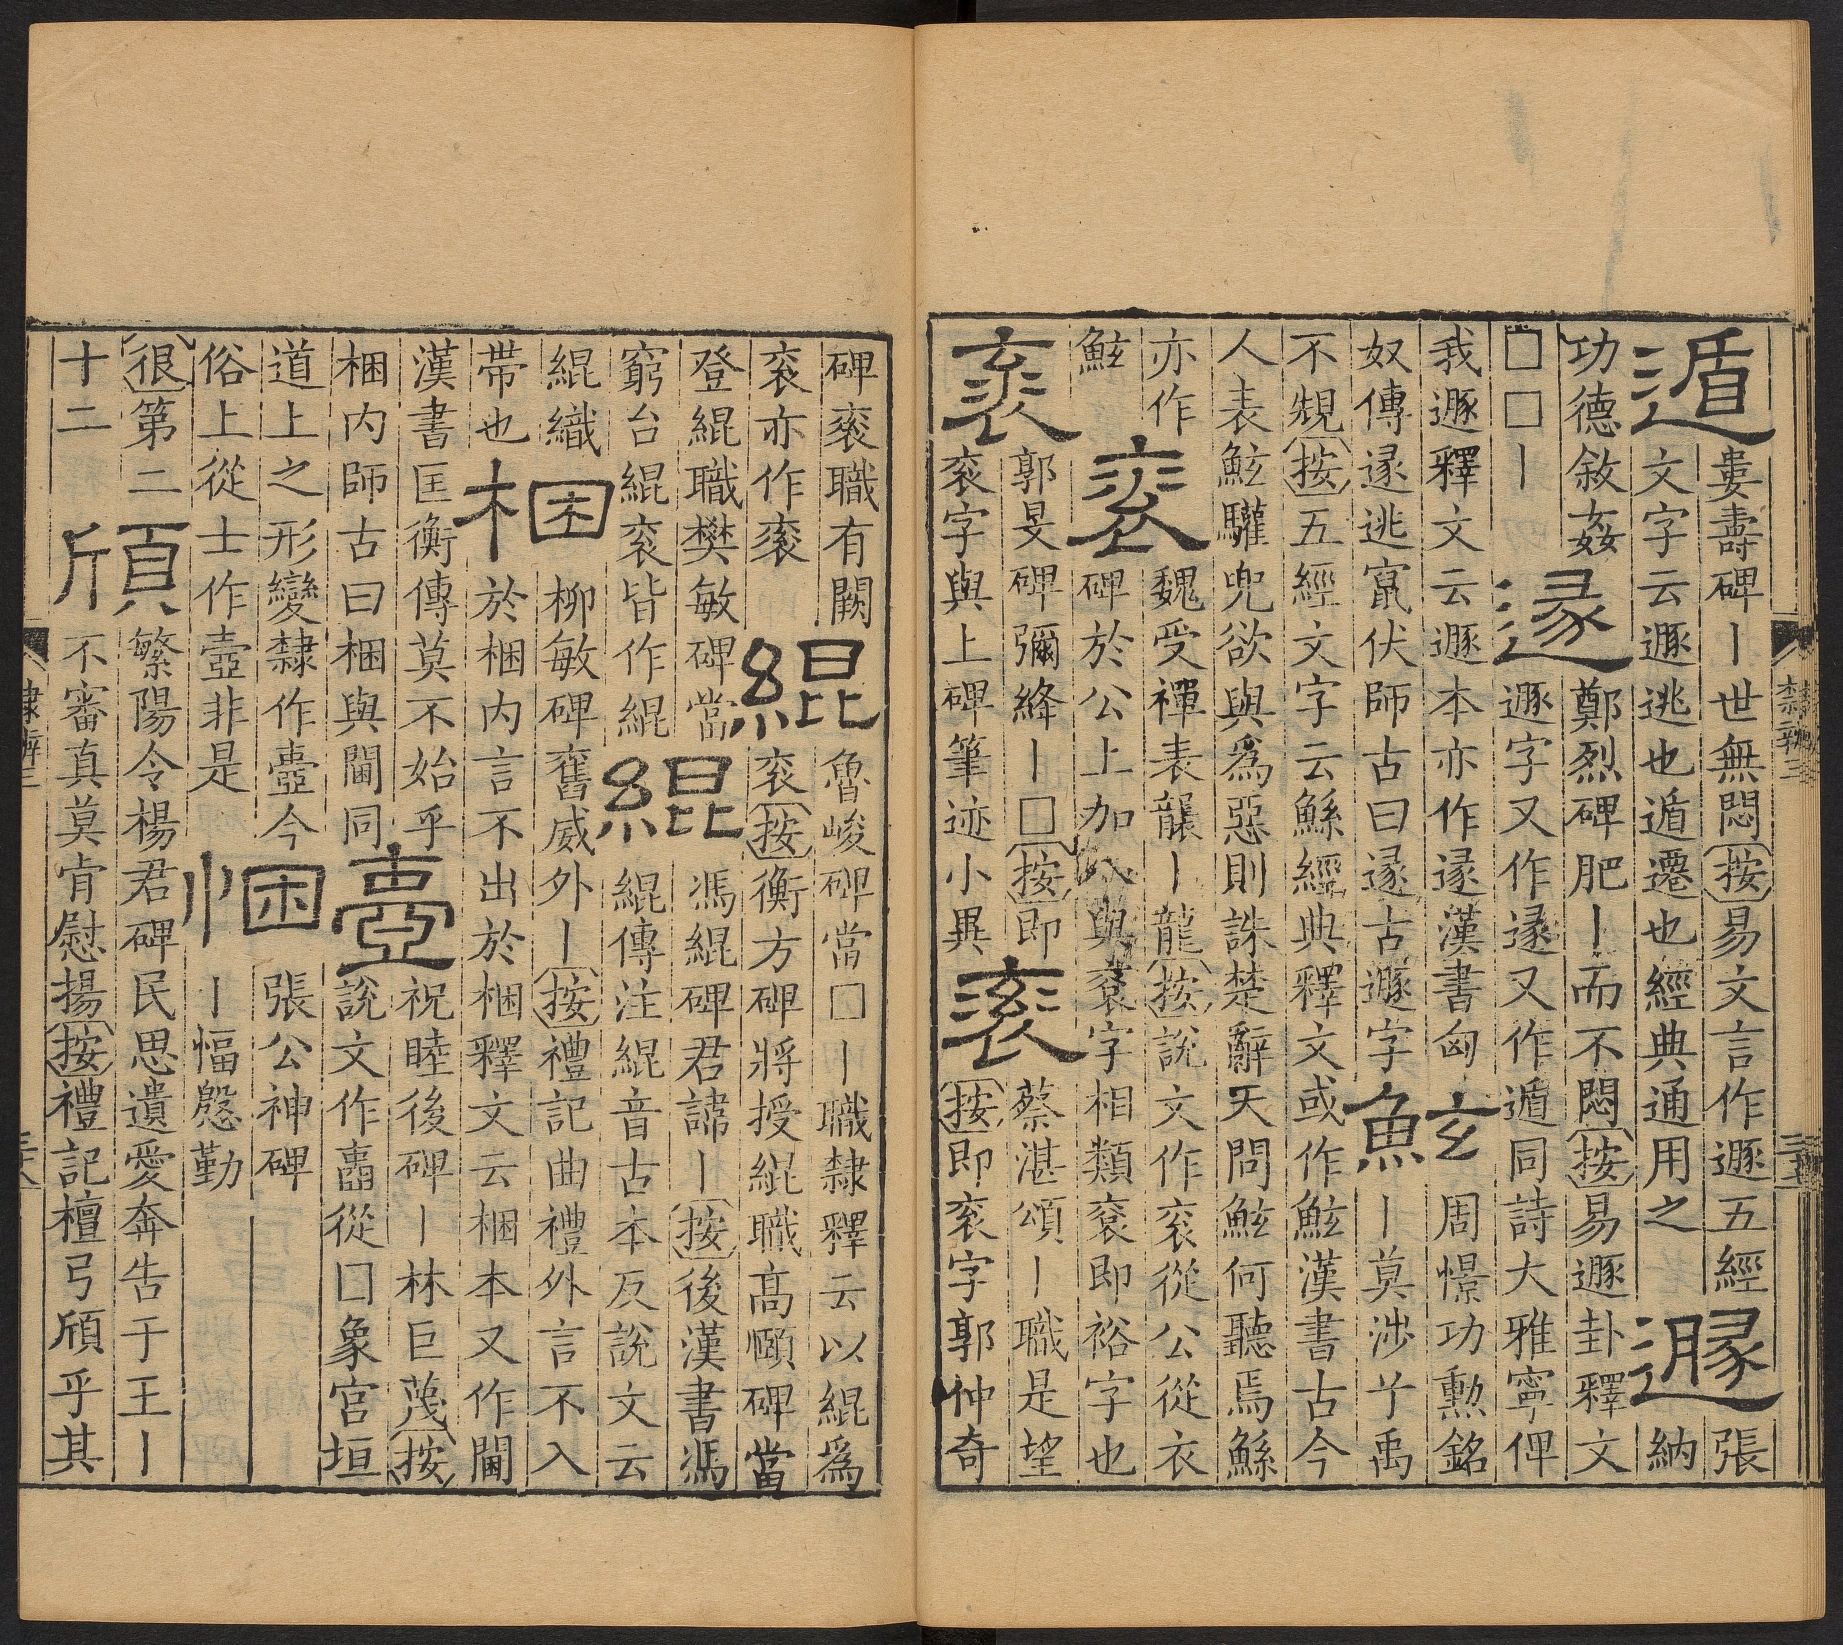 遁
婁壽碑丨世無悶按易文言作遯五經
文字云遯逃也遁遷也經典通用之
遯
張
納
功德敘姦
□□丨
遂
鄭烈碑肥丨而不悶按易遯卦釋文
遯字又作遂又作遁同詩大雅寧俾
我遯釋文云遯本亦作遂漢書匈
奴傳遂逃竄伏師古曰遂古遯字
鮌
周憬功勳銘
丨莫涉丬禹
不䂓按五經文字云鯀經典釋文或作鮌漢書古今
人表鮌驩兜欲與為惡則誅楚辭天問鮌何聽焉鯀
亦作
鮌
衮
魏受禪表襲丨龍按說文作衮從公從衣
碑於公上加八與袞字相類袞即裕字也
衮
郭旻碑彌綘丨□按即
衮字與上碑筆迹小異
衮
蔡湛頌丨職是望
按即衮字郭仲奇
碑衮職有闕
衮亦作衮
緄
魯峻碑當□丨職隸釋云以緄為
衮按衡方碑將授緄職高頤碑當
登緄職樊敏碑當
窮台緄衮皆作緄
緄
馮緄碑君諱丨按後漢書馮
緄傳注緄音古本反說文云
緄織
帶也
梱
柳敏碑奮威外丨按禮記曲禮外言不入
於梱内言不出於梱釋文云梱本又作閫
漢書匡衡傳莫不始乎
梱内師古曰梱與閫同
壼
祝睦後碑丨林巨茂按
說文作壼從囗象宮垣
道上之形變隸作壼今
俗上從士作壼非是
悃
張公神碑
丨愊慇勤
很第二
十二
頎
繁陽令楊君碑民思遺愛奔告于王丨
不審真莫肯慰揚按禮記檀弓頎乎其